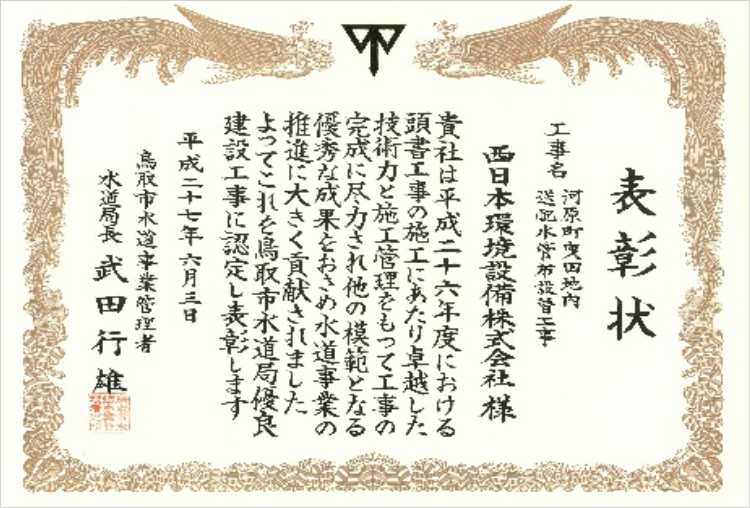 表彰状
工事名
河原町曳田地内
送配水管布設替工事
西日本環境設備株式会社 様
貴社は平成二十六年度における
頭書工事の施工にあたり卓越した
技術力と施工管理をもって工事の
完成に尽力され他の模範となる
優秀な成果をおさめ水道事業の
推進に大きく貢献されました
よってこれを鳥取市水道局優良
建設工事に認定し表彰します
平成二十七年六月三日
鳥取市水道事業管理者
水道局長 武田行雄